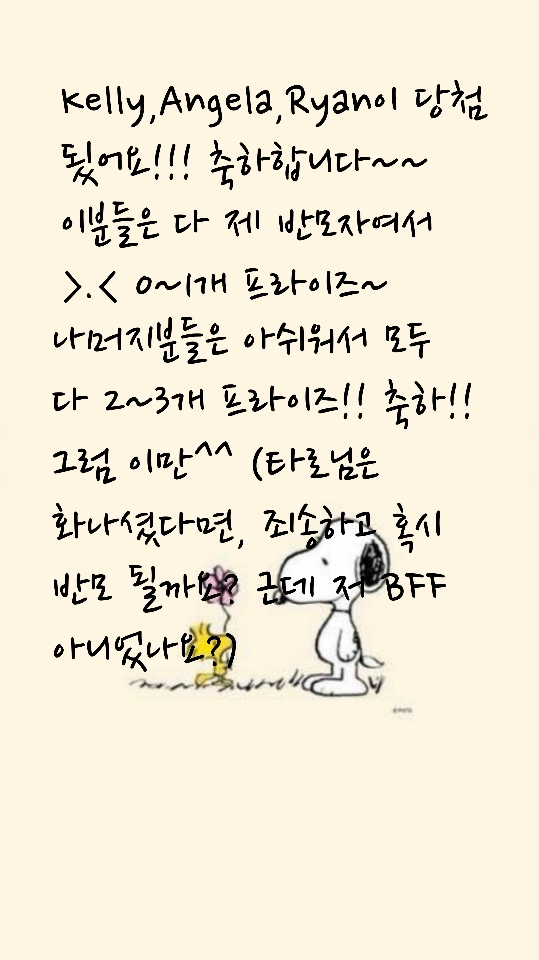 Kelly,Angela,Ryan이 당첨
됐어요!!! 축하합니다~~
이분들은 다 제 반모자여서
>.< 0~1개 프라이즈~
나머지분들은 아쉬워서 모두
다 2~3개 프라이즈!! 축하!!
그럼 이만^^ (타로님은
화나셨다면, 죄송하고 혹시
반모 될까요? 근데 저 BFF
아니었나요?)